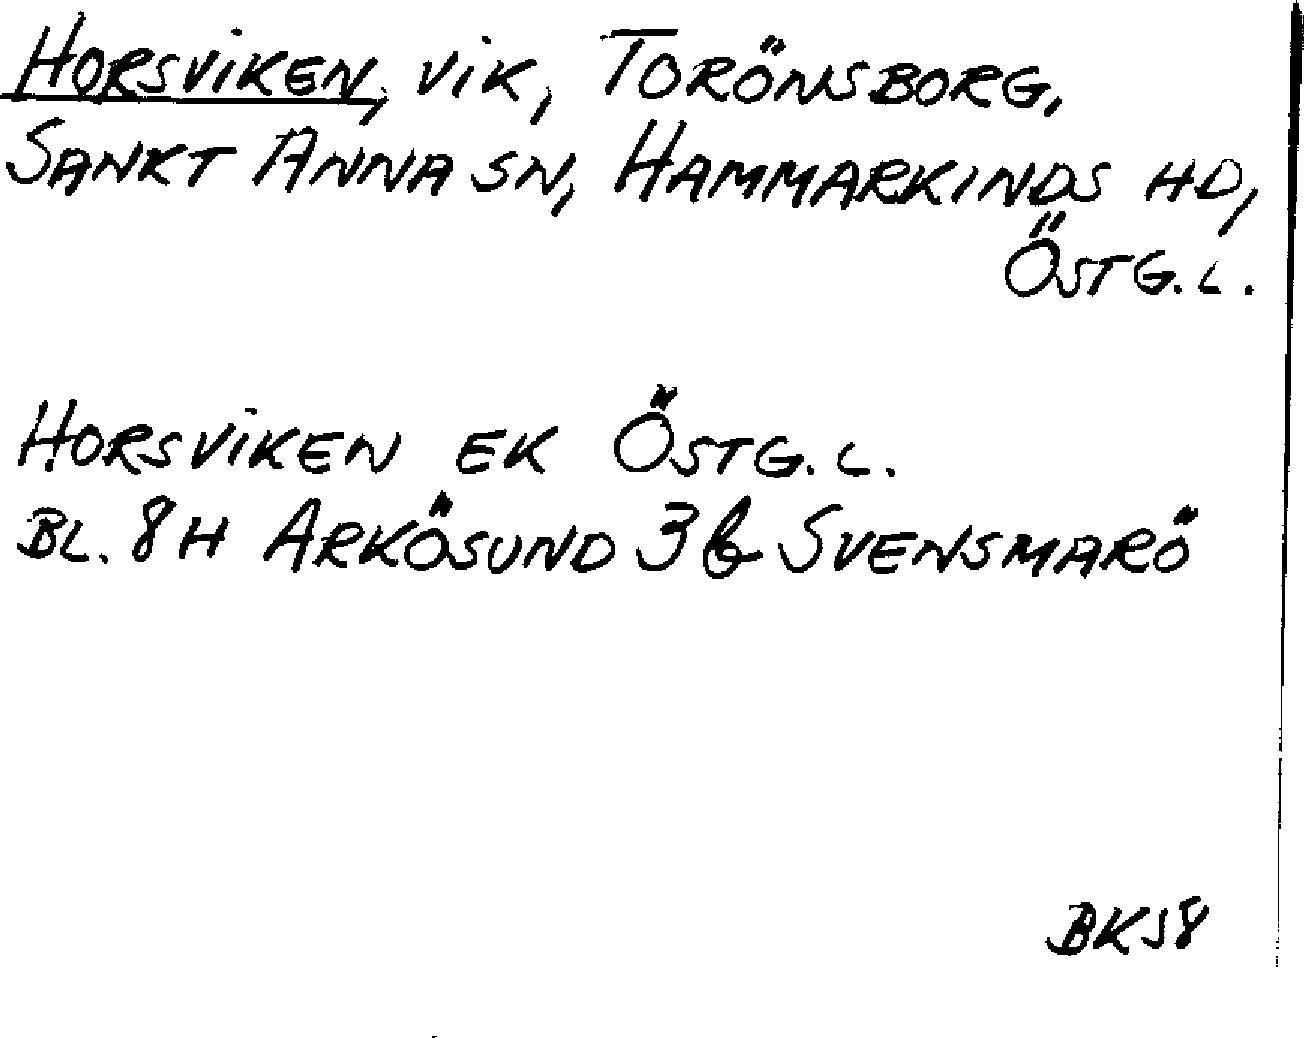 HORSVIKEN, VIK, TORÖNSBORG,
SANKT ANNA SN, HAMMARKINDS HD,
ÖSTG.L.
HORSVIKEN EK ÖSTG.L.
BL. 8H ARKÖSUND 3b SVENSMARÖ